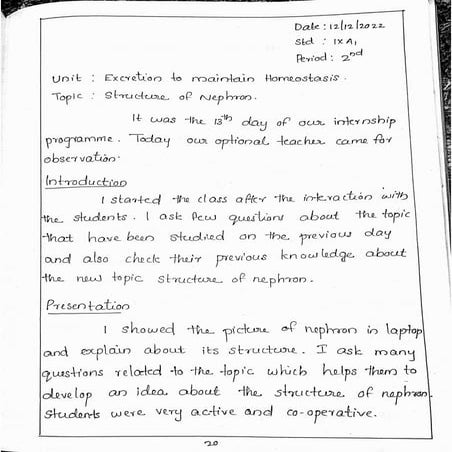 Date : 12/12/2022
Std : IX A1
Period : 2nd
Unit : Excretion to maintain Homeostasis.
Topic : Structure of Nephron.
It was the 13th day of our internship
programme. Today our optional teacher came for
observation.
Introduction
I started the class after the interaction with
the students. I ask few questions about the topic
that have been studied on the previous day
and also check their previous knowledge about
the new topic structure of nephron.
Presentation
I showed the picture of nephron in laptop
and explain about its structure. I ask many
questions related to the topic which helps them to
develop an idea about the structure of nephron.
Students were very active and co-operative.
20